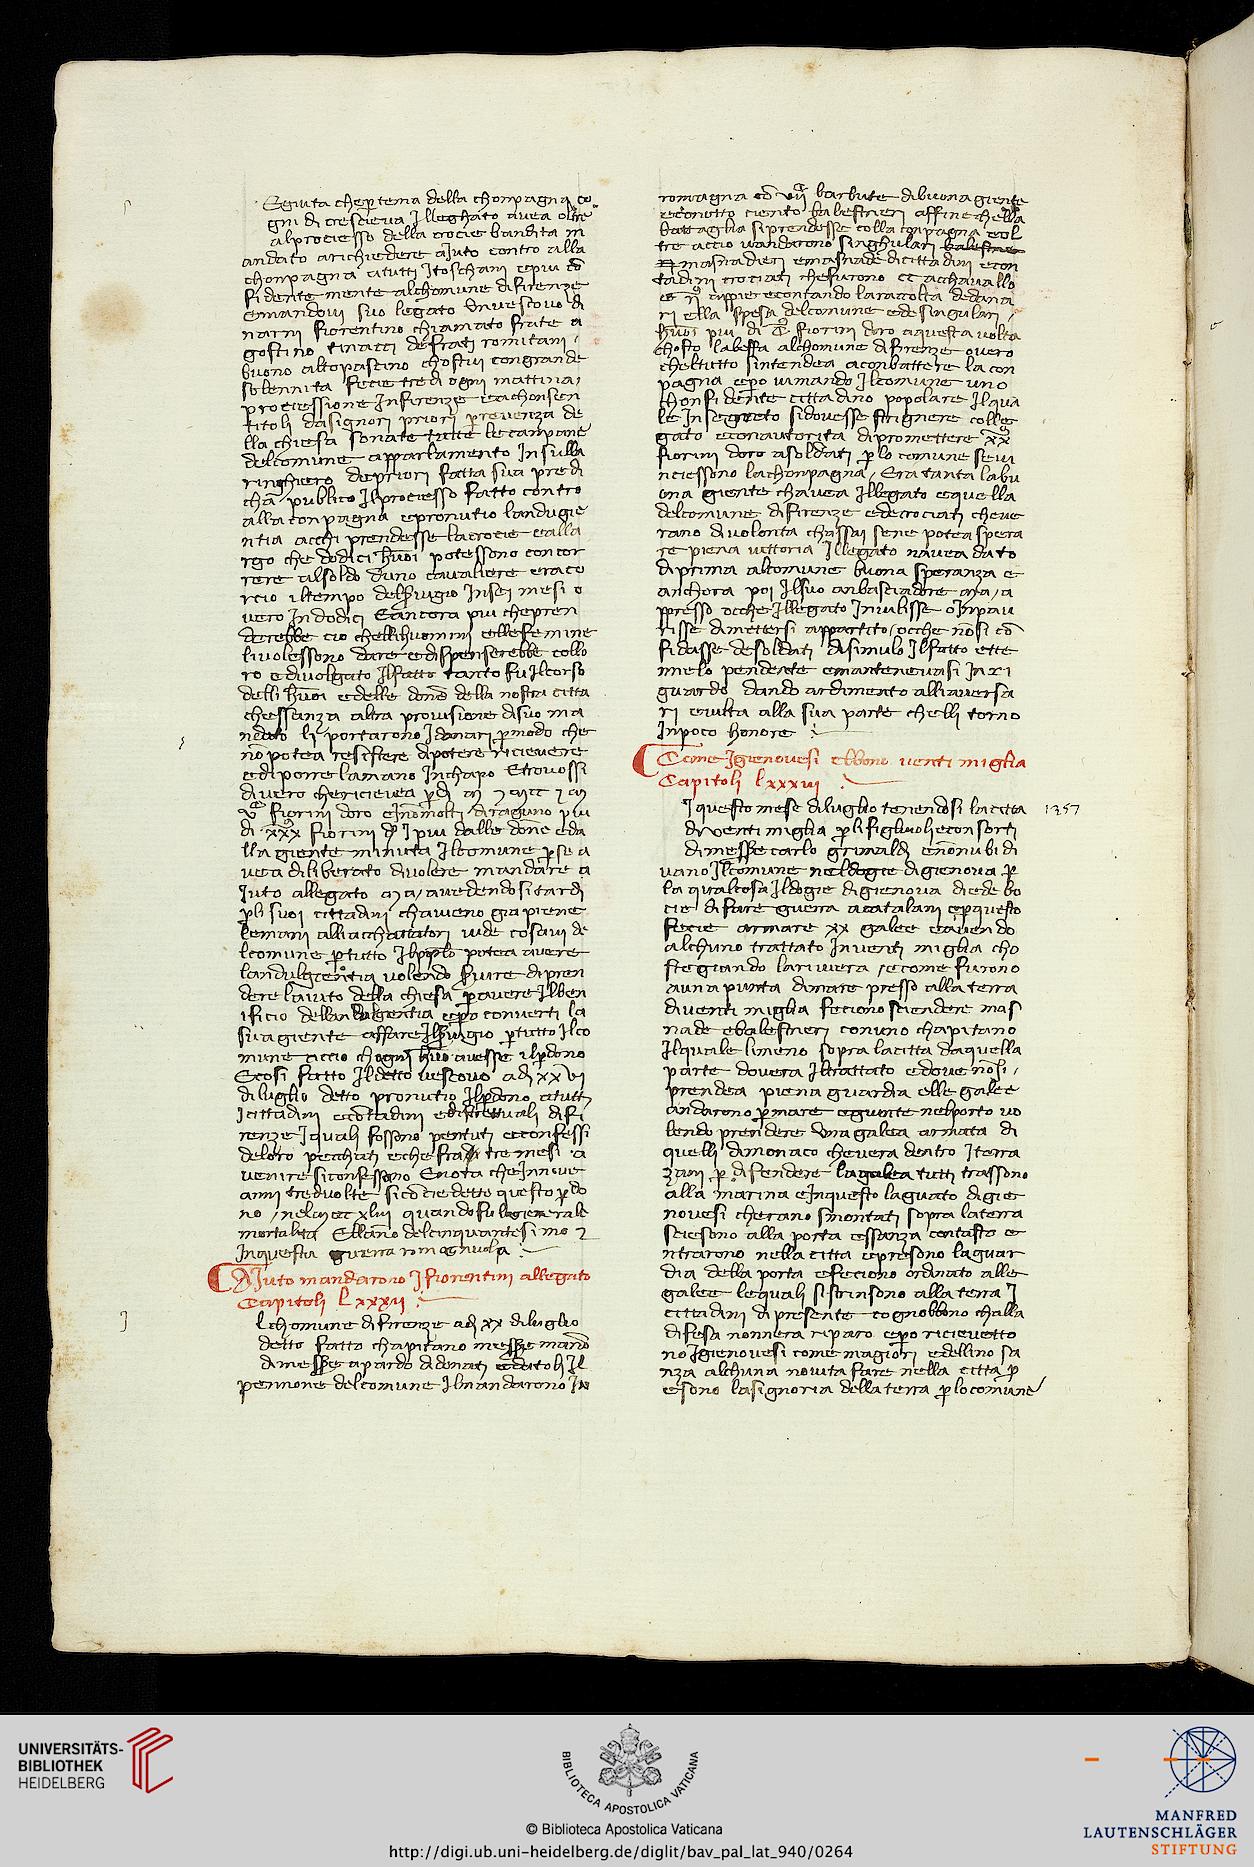 Seguita cheper tema della chompagna co
gni di crescieva Illeghato avea oltre
alprociesso della crocie bandita m
andato arichiedere aiuto contro alla
chonpagna atutti Itoschani epiu cō
fidente mente alchomune difirenze
emandovi suo legato Unvescovo di
narni fiorentino chiamato frate a
gostino tinacci defrati romitani
buono altopascino chostui congrande
solennita fecie tredi ogni mattina
prociessione Infirenze eachonsen
titoli dasignori priori prevenza de
lla chiesa sonate tutte lecampane
delcomune apparlamento Insulla
ringhiera depriori fatta sua predi
cha publico Ilprociesso fatto contro
alla conpagna epronutio landugie
ntia acchi prendesse lacrocie ealla
rgo che dodici huoi potessono concor
rere alsoldo duno cavaliere eraco
rcio iltempo delservigio Insei mesi o
vero Indodici Eancora piu chepren
derebbe cio chellihuomini ellefemine
livolessono dare edispenserebbe collo
ro edivolgato Ilfatto tanto fu Ilcorso
delli huoi edelle done della nostra citta
chessanza altra provisione disuo ma
ndato li portarono Idanari permodo che
nō potea resistere dipotere ricievere
edi porre lamano Inchapo Etrovossi
divero chericievea per di
fiorini doro einomolti diraguno piu
di xxx fiorini Ipiu dalle done eda
lla giente minuta Ilcomune per se a
vea diliberato divolere mandare a
Iuto allegato ma avedendosi tardi
perli suoi cittadini chaveno gia piene
lemani alli acchattatori vide cosavi de
lcomune pertutto Ilpopolo potea avere
landulgentia volendo servire dipren
dere laiuto della chiesa peravere Ilben
ificio dellandulgentia epero converti la
sua giente affare Ilservigio pertutto Ilco
mune accio chogni huo avesse ilperdono
Ecosi fatto Ildetto vescovo adi xxvi
diluglio detto pronutio Ilperdono atutti
Icittadini econtadini edistrettuali difi
renze Iquali fossono pentuti econfessi
deloro pecchati eche fradi tre mesi a
venire siconfessono Enota che Innove
anni tredvolte sicōciedette questo perdo
no nel quando fu lagienerale
mortalita Ellanno delcinquantesimo z
Inquesta guerra romagnuola
Aiuto mandarono Ifiorentini allegato
Capitoli lxxxii
Lchomune difirenze adi xx diluglio
detto fatto chapitano messer manō
dimesser apardo didonati edatoli Il
pennone delcomune Ilmandarono In
romagna cō barbute dibuona giente
econotto ciento balestrieri affine chella
battaglia siprendesse colla conpagna eol
tre accio vandarono singhulari
masnadieri emasnade dicittadini econ
tadini crociati chefurono cc acchavallo
appie econtando laraccolta dedana
ri ella spesa delcomune ede singulari
huoi piu di fiorini doro aquesta volta
chosto labeffa alchomune difirenze overo
cheltutto sintendea aconbattere lacon
pagna epero vimando Ilcomune uno
chonfidente cittadino popolare Ilqua
le Insegreto sidovesse strignere colle
gato econautorita dipromettere xx
fiorini doro asoldati perlo comune sevi
nciessono lachonpagna Era tanta labu
ona giente chavea Illegato equella
delcomune difirenze edecrociati cheve
rano divolonta chassai sene potea spera
re piena vittoria Illegato navea dato
diprima alcomune buona speranza e
anchora poi Ilsuo anbasciadore ma a
presso ocche Illegato Invilisse oInpau
risse dimettersi appartito ocche nōsi cō
fidasse desoldati disimulo Ilfatto ette
melo pendente emantenevasi In ri
guardo dando ardimento alliaversa
ri evilta alla sua parte chelli torno
Inpoco honore
Come Igienovesi ebbono venti miglia
Capitoli lxxxiii
1357
I questo mese diluglio tenendosi lacitta
diventimiglia perli figliuoli econsorti
dimesser carlo grimaldi enonubidi
vano Ilcomune neldogie digienova per
la qualcosa Ildogie digienova diede bo
cie difare guerra acatalani eperquesto
fecie armare xx galee eavendo
alchuno trattato Inventi miglia cho
stegiando lariviera ecome furono
auna punta dimare presso alla terra
diventi miglia feciono sciendere mas
nade ebalestrieri conuno chapitano
Ilquale limeno sopra lacitta daquella
parte dovera Iltrattato edove nōsi
prendea piena guardia elle galee
andarono permare egiunte nelporto vo
lendo prendere Una galea armata di
quelli dimonaco chevera dentro Iterra
zani per difendere lagalea tutti trassono
alla marina eInquesto laguato digie
novesi cherano smontati sopra laterra
sciesono alla porta essanza contasto e
ntrarono nella citta epresono laguar
dia della porta efeciono ordinato alle
galee lequali sistrinsono alla terra I
cittadini dipresente cognobbono challa
difesa nonnera riparo epero ricievetto
no Igienovesi come magiori edellino sa
nza alchuna novita fare nella citta per
esono lasignoria della terra perlocomune
UNIVERSITÄTS-
BIBLIOTHEK
HEIDELBERG
BIBLIOTECA APOSTOLICA VATICANA
© Biblioteca Apostolica Vaticana
http://digi.ub.uni-heidelberg.de/diglit/bav_pal_lat_940/0264
MANFRED
LAUTENSCHLÄGER
STIFTUNG